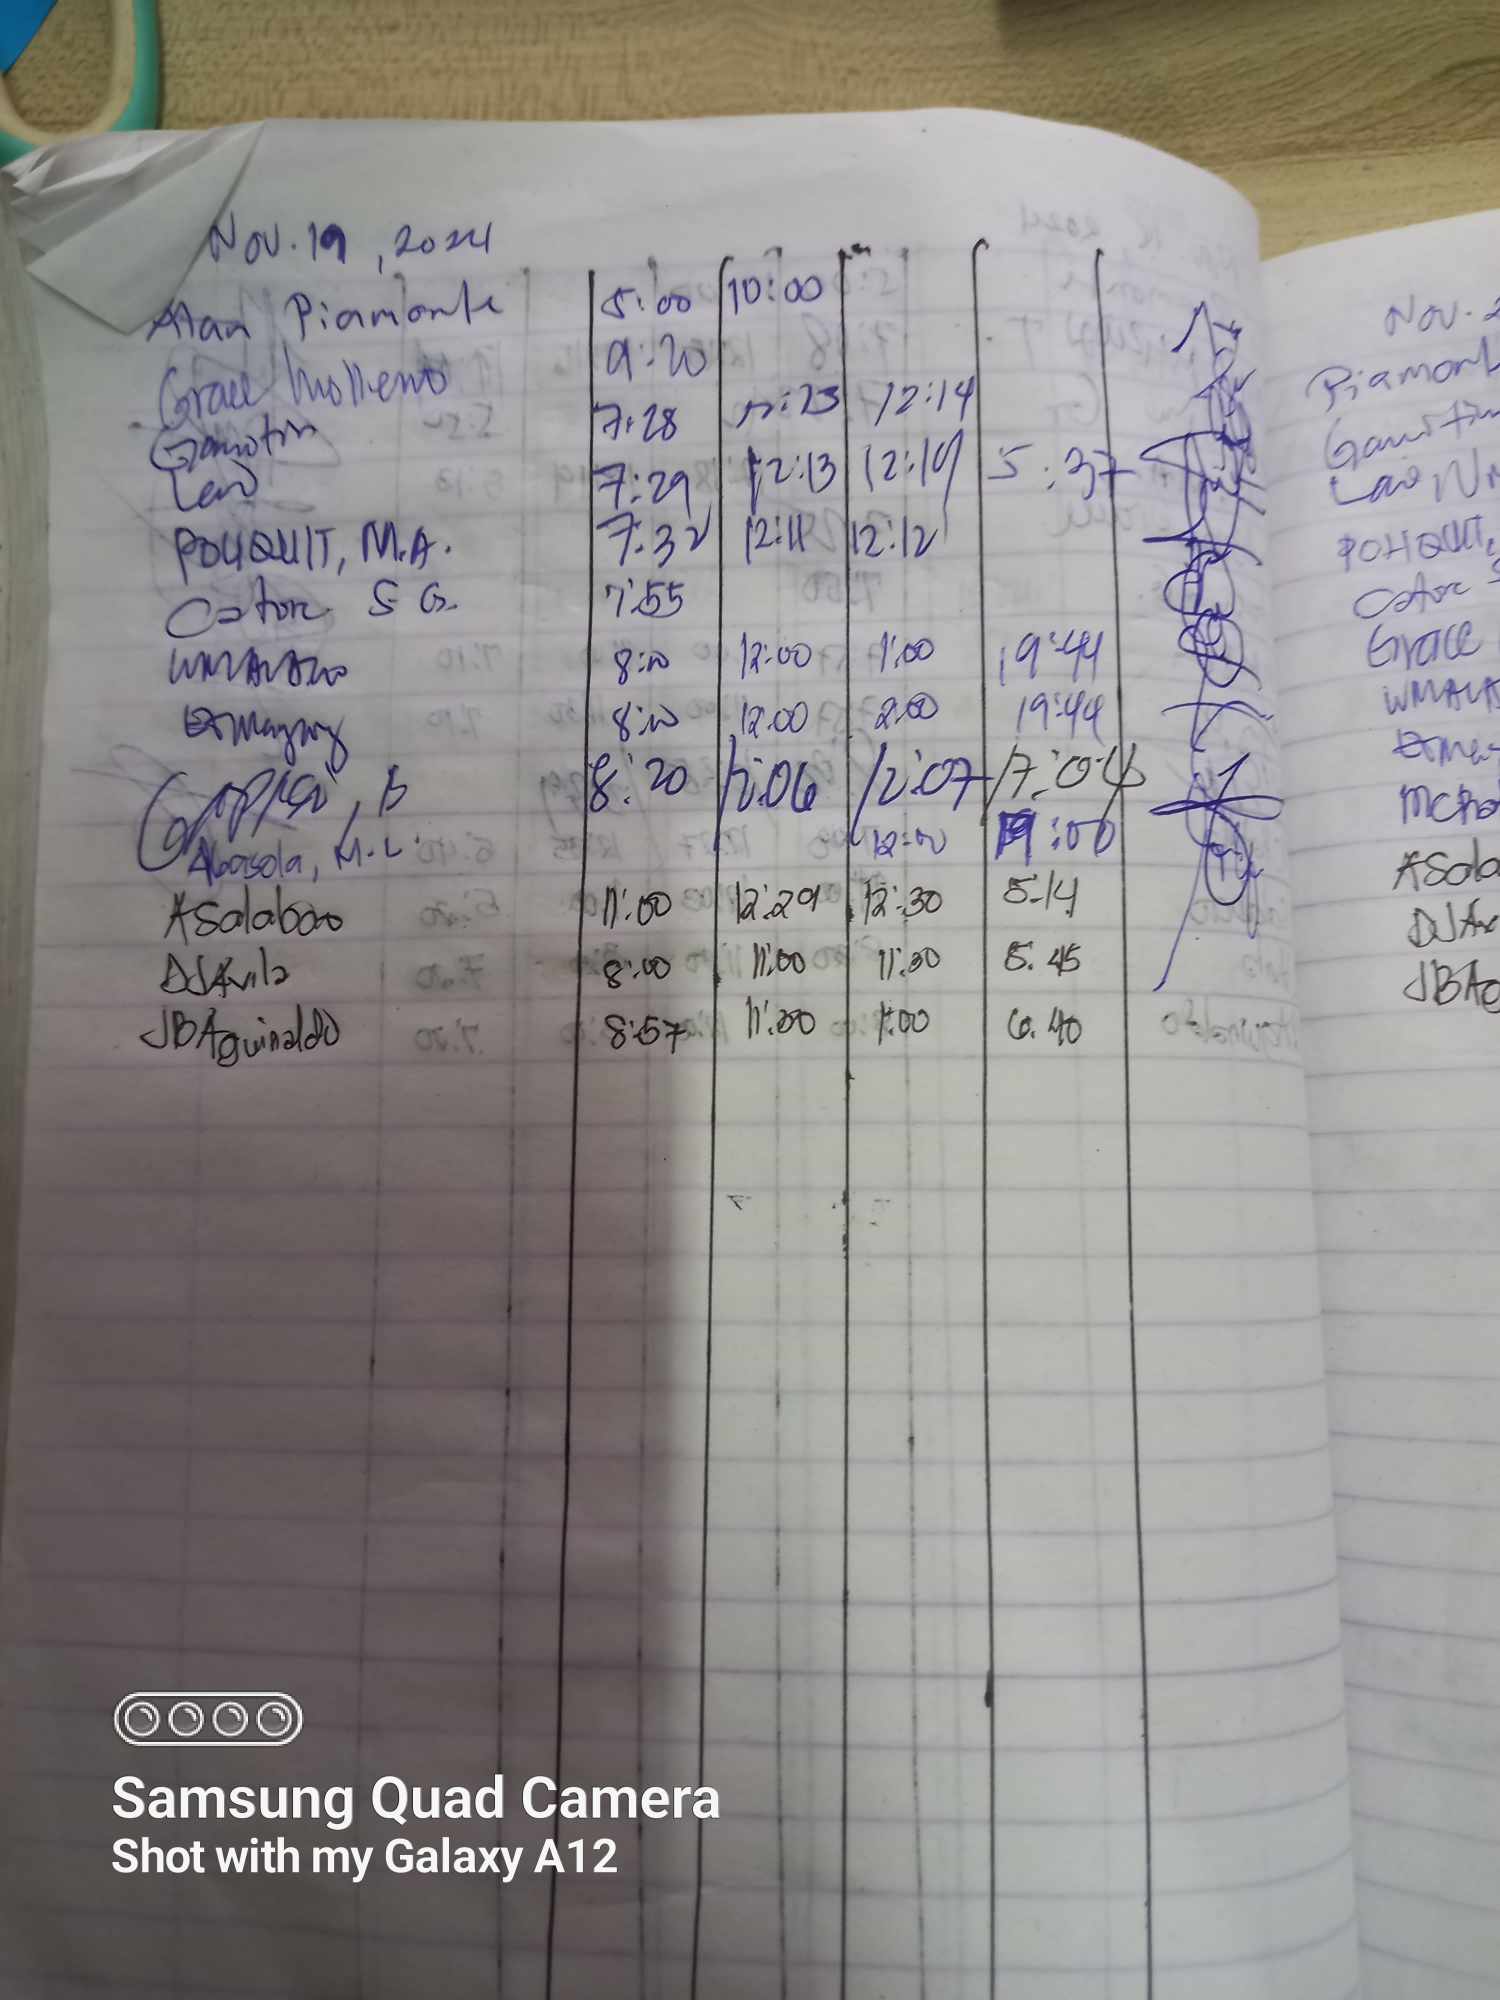 Nov. 19, 2024
Alan Piamonte 5:00 10:00
Grace 9:20
Gamotin 7:28 12:23 12:14
7:29 12:13 12:19 5:37
POHQUIT, M.A. 7:32 12:11 12:12
Cator S G. 7:55
8:00 12:00 1:00 19:44
8:00 12:00 2:00 19:44
8:20 12:06 12:07 17:04
Abasola, M.L. 12:00 19:00
ASalabao 11:00 12:29 12:30 5:14
DJAvila 8:00 11:00 11:30 5.45
JBAguinaldo 8:57 11:30 1:00 6.40
Nov. 2
Piamont
POHQUIT,
Cator S
Grace
ASala
DJAv
JBAg
Samsung Quad Camera
Shot with my Galaxy A12